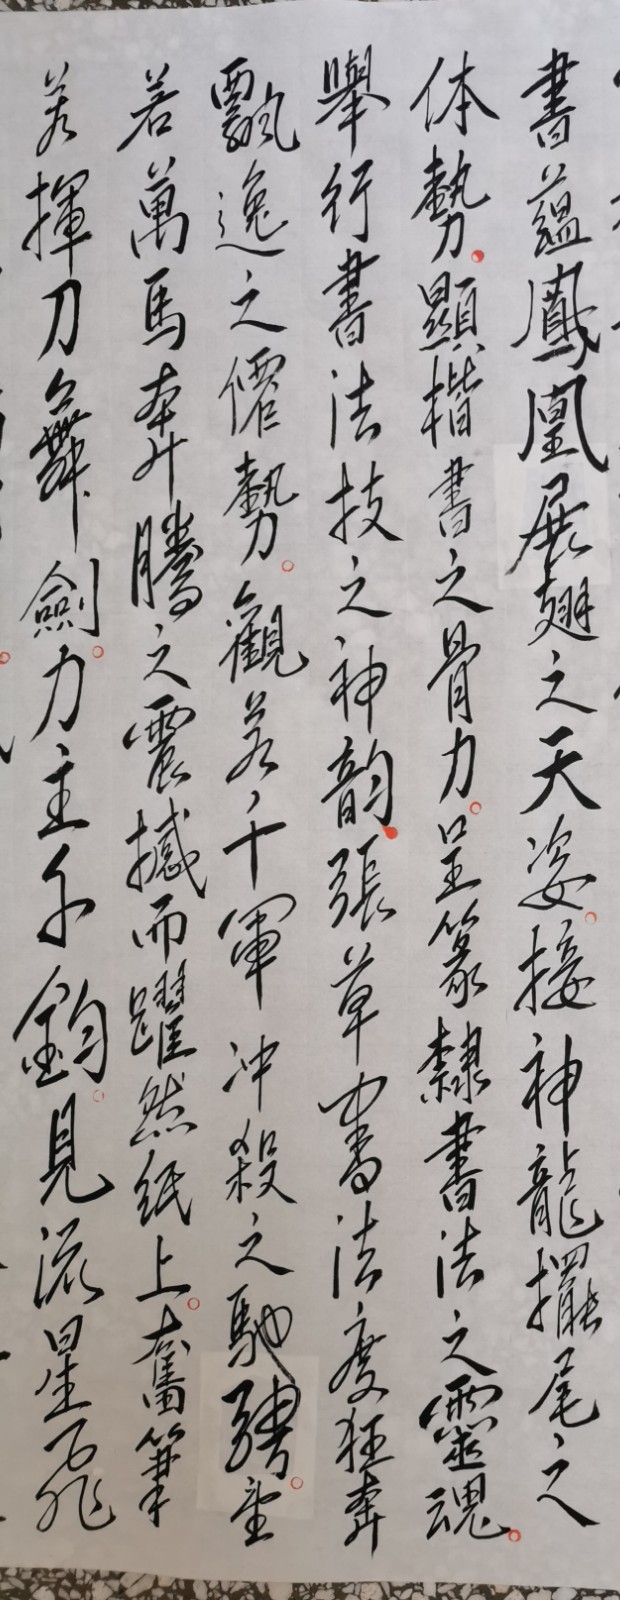 書蘊鳳凰展翅之天姿接神龍擺尾之
体勢顯楷書之骨力呈篆隸書法之靈魂
舉行書法技之神韵張草書法度狂奔
飄逸之僊勢觀若千軍冲殺之馳騁重
若萬馬奔騰之震撼而躍然紙上奮筆
若揮刀舞劍力主千鈞見流星飛